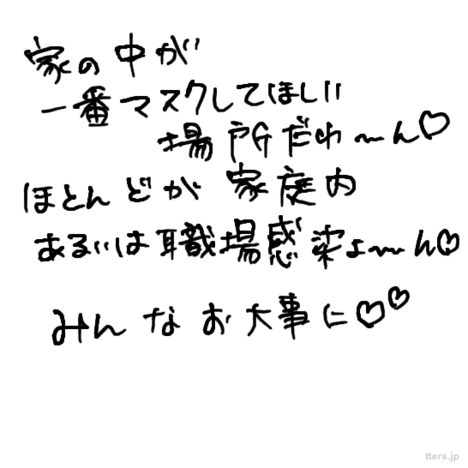 家の中が
一番マスクしてほしい
場所だわ〜ん♡
ほとんどが家庭内
あるいは職場感染よ〜ん♡
みんなお大事に♡♡
tters.jp